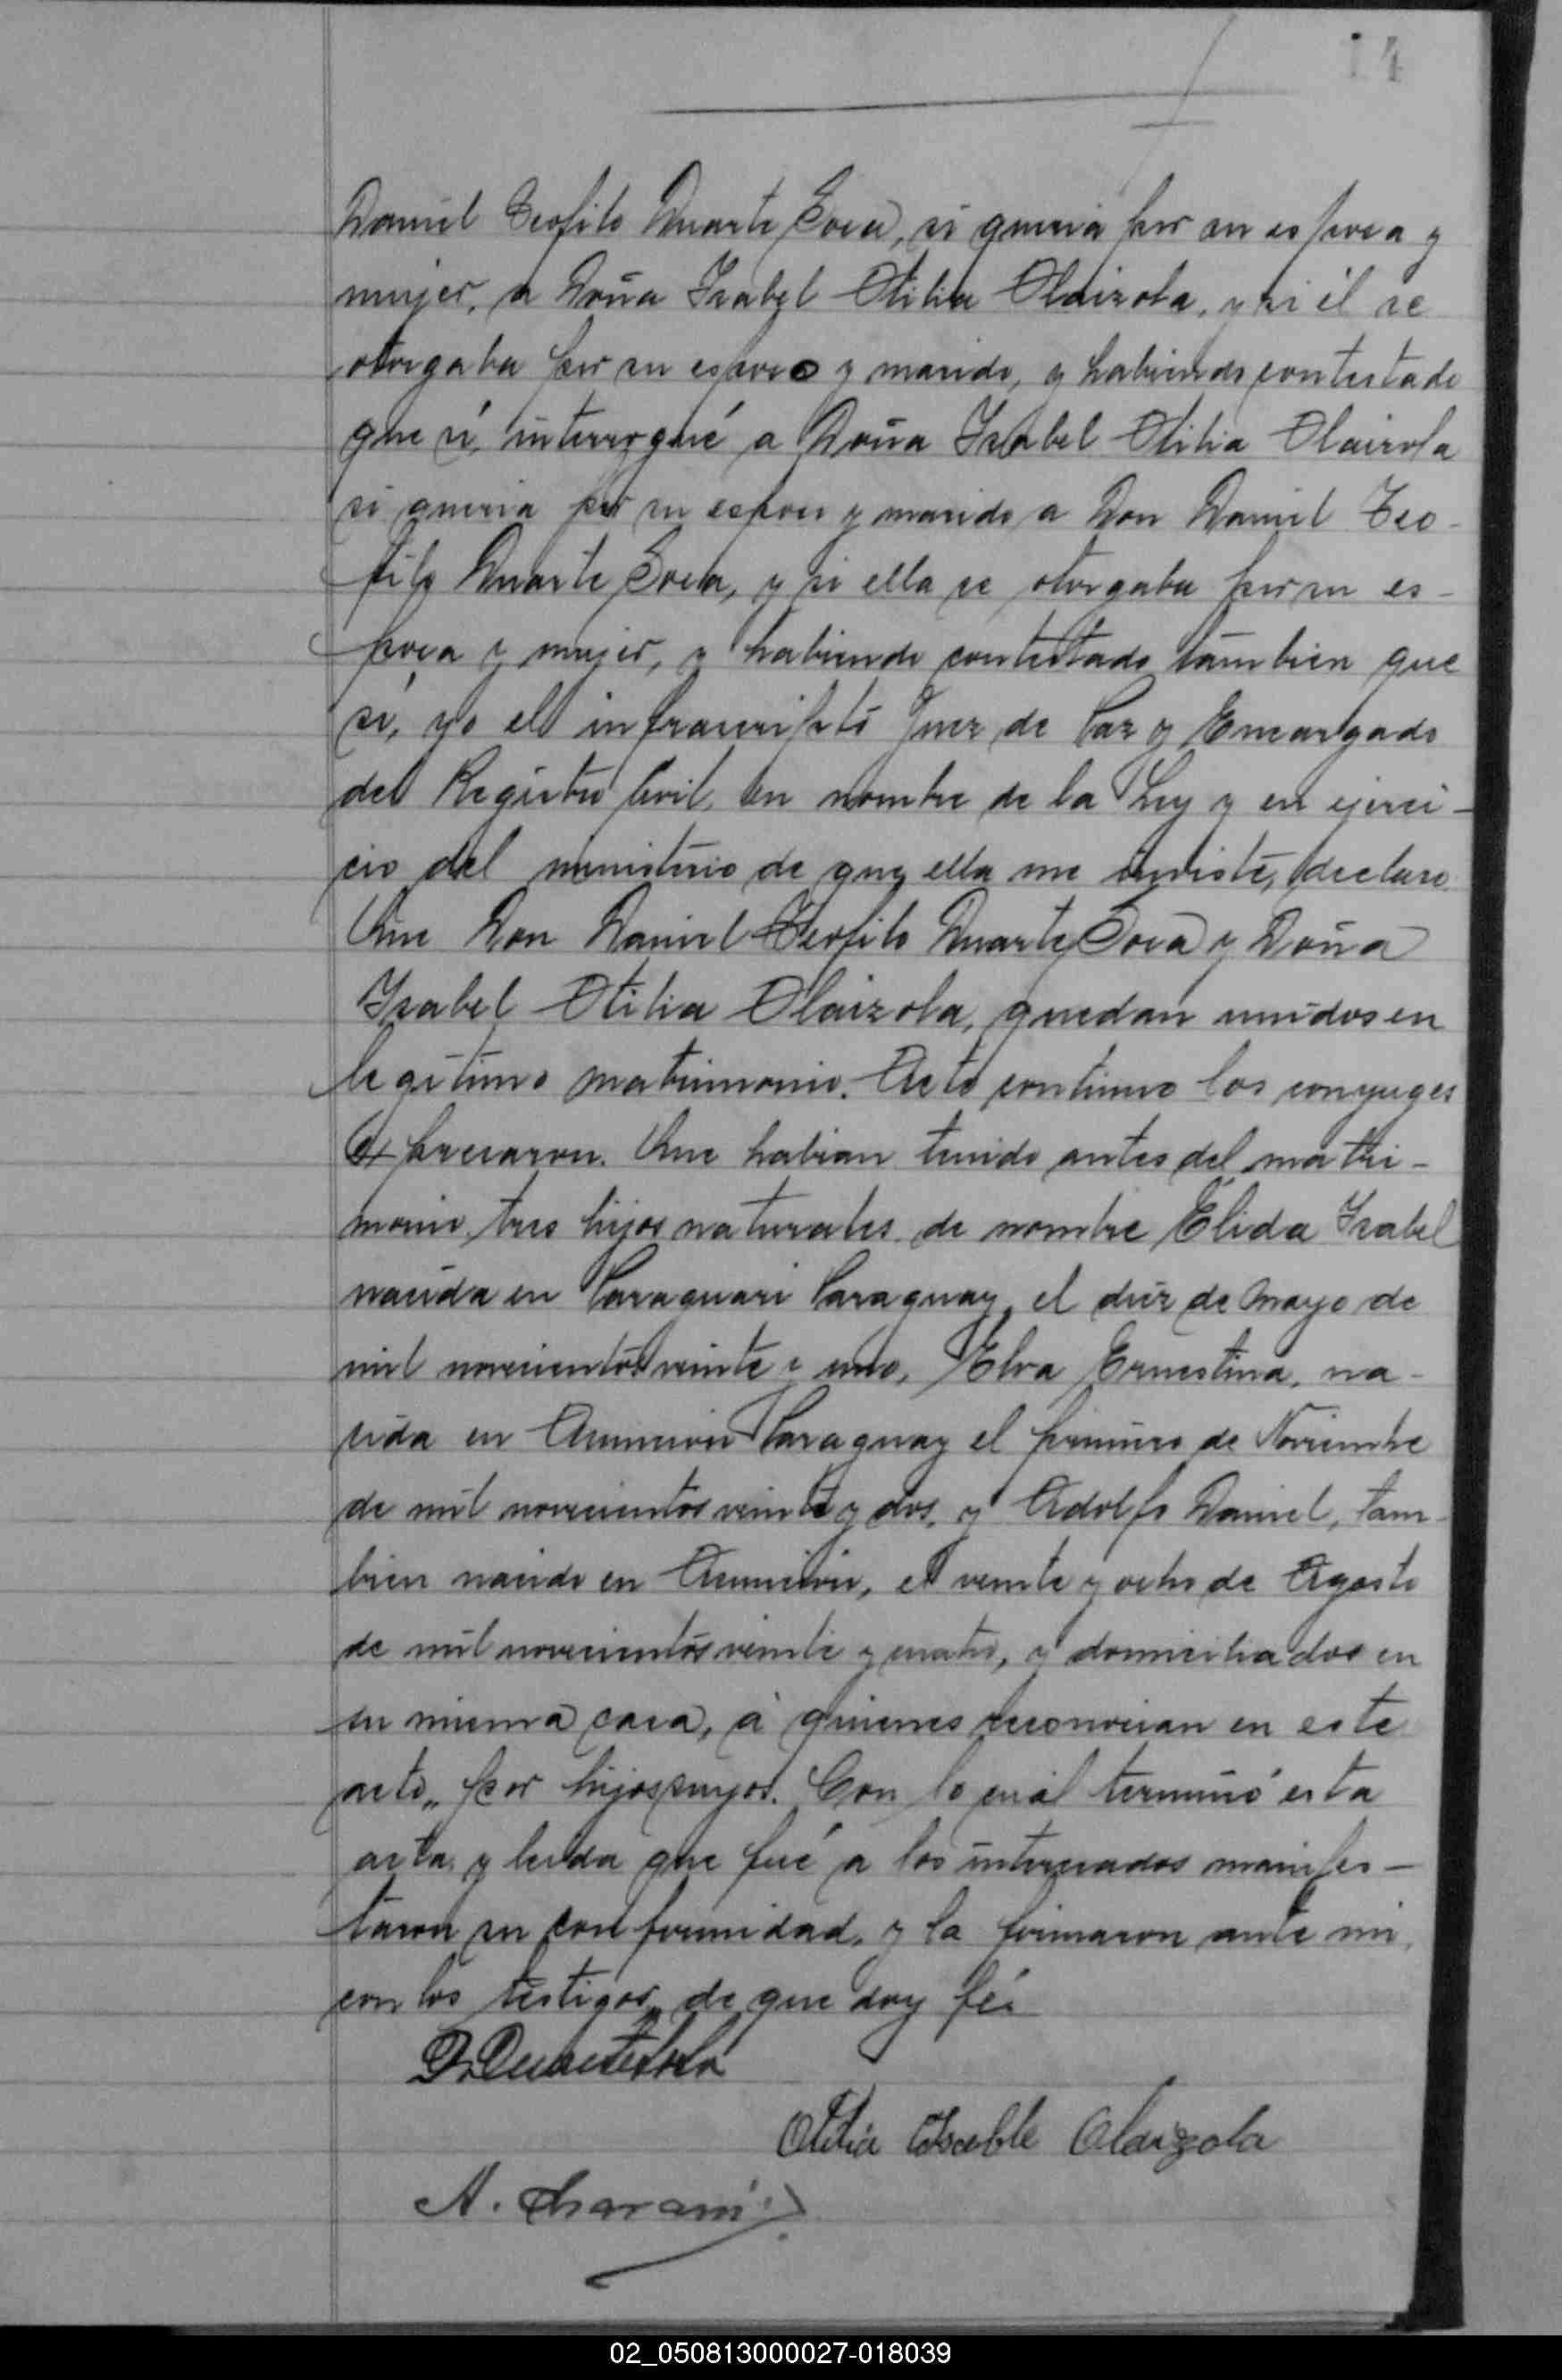 14
Daniel Teofilo Duarte Sosa, si queria por su esposa y
mujer, a Doña Isabel Otilia Olaizola, y si él se
otorgaba por su esposo y marido, y habiendo contestado
que si, interrogué a Doña Isabel Otilia Olaizola
si queria por su esposo y marido a Don Daniel Teo-
filo Duarte Sosa, y si ella se otorgaba por su es-
posa y mujer, y habiendo contestado tambien que
si, yo el infrascripto Juez de Paz y Encargado
del Registro Civil, en nombre de la Ley y en ejerci-
cio del ministerio de que ella me inviste, declaro.
Que Don Daniel Teofilo Duarte Sosa y Doña
Isabel Otilia Olaizola, quedan unidos en
legitimo matrimonio. Acto continuo los conyuges
expresaron. Que habian tenido antes del matri-
monio, tres hijos naturales de nombre Élida Isabel
nacida en Paraguari Paraguay, el diez de Mayo de
mil novecientos veinte y uno, Elva Ernestina, na-
cida en Asuncion Paraguay el primero de Noviembre
de mil novecientos veinte y dos, y Adolfo Daniel, tam-
bien nacido en Asuncion, el veinte y ocho de Agosto
de mil novecientos veinte y cuatro, y domiciliados en
su misma casa, á quienes reconocian en este
acto, por hijos suyos. Con lo cual terminó esta
acta, y leida que fué a los interesados manifes-
taron su conformidad, y la firmaron ante mi,
con los testigos, de que doy fé.
D. Duarte Sosa
Otilia Isable Olaizola
A.
02_050813000027-018039